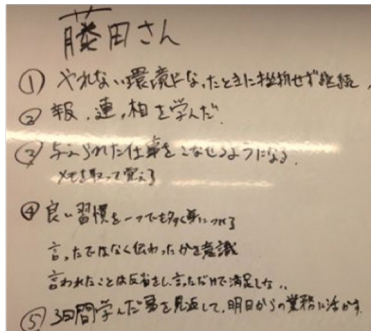 藤田さん
① やれない環境になったときに挫折せず継続
② 報、連、相を学んだ.
③ 与えられた仕事をこなせるようになる.
メモを取って覚える
④ 良い習慣を一つでも多く身につける
言ったではなく伝わったかを意識
言われたことは反省をし、言っただけで満足しない..
⑤ 3日間学んだ事を見返して、明日からの業務に活かす.